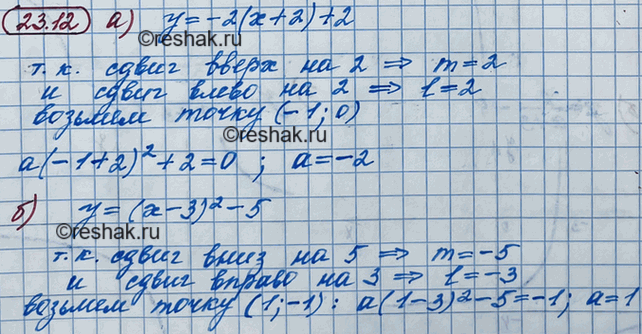 23.12 а) y=-2(x+2)+2
©reshak.ru
т.к. сдвиг вверх на 2 ⇒ m=2
и сдвиг влево на 2 ⇒ l=2
возьмем точку (-1;0)
©reshak.ru
a(-1+2)²+2=0 ; a=-2
б) y=(x-3)²-5
©reshak.ru
т.к. сдвиг вниз на 5 ⇒ m=-5
и сдвиг вправо на 3 ⇒ l=-3
возьмем точку (1;-1): a(1-3)²-5=-1; a=1